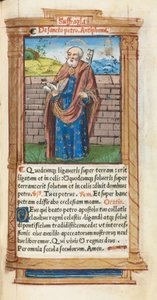 Suffragia.
De sancto petro. Antiphona.
Quodcumq; ligaveris super terram: erit
ligatum et in celis: et quodcumq; solveris super
terram erit solutum et in celis dicit dominus
petro. V. Tu es petrus. R. Et super hanc
petram edificabo ecclesiam meam. Oratio.
Deus qui beato petro apostolo tuo collatis
clavibus regni celestis ligandi atq; solvendi
pontificium tradidisti: concede ut inter
eius auxilio a peccatorum nostrorum nexi
bus liberemur. Qui vivis et regnas deus
Per omnia secula seculorum. Amen.